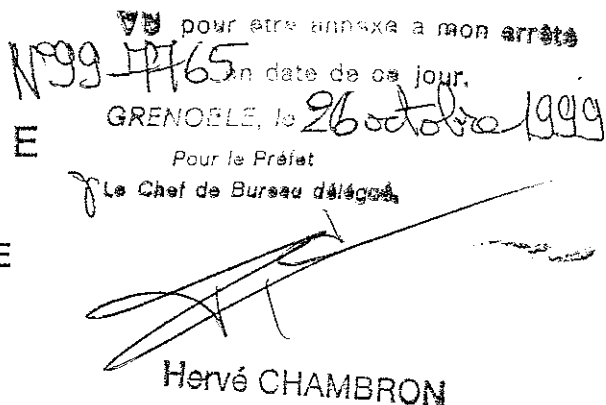 VU pour être annexé à mon arrêté
N°99-7765 en date de ce jour.
GRENOBLE, le 26 octobre 1999
E
Pour le Préfet
Le Chef de Bureau délégué,
E
Hervé CHAMBRON